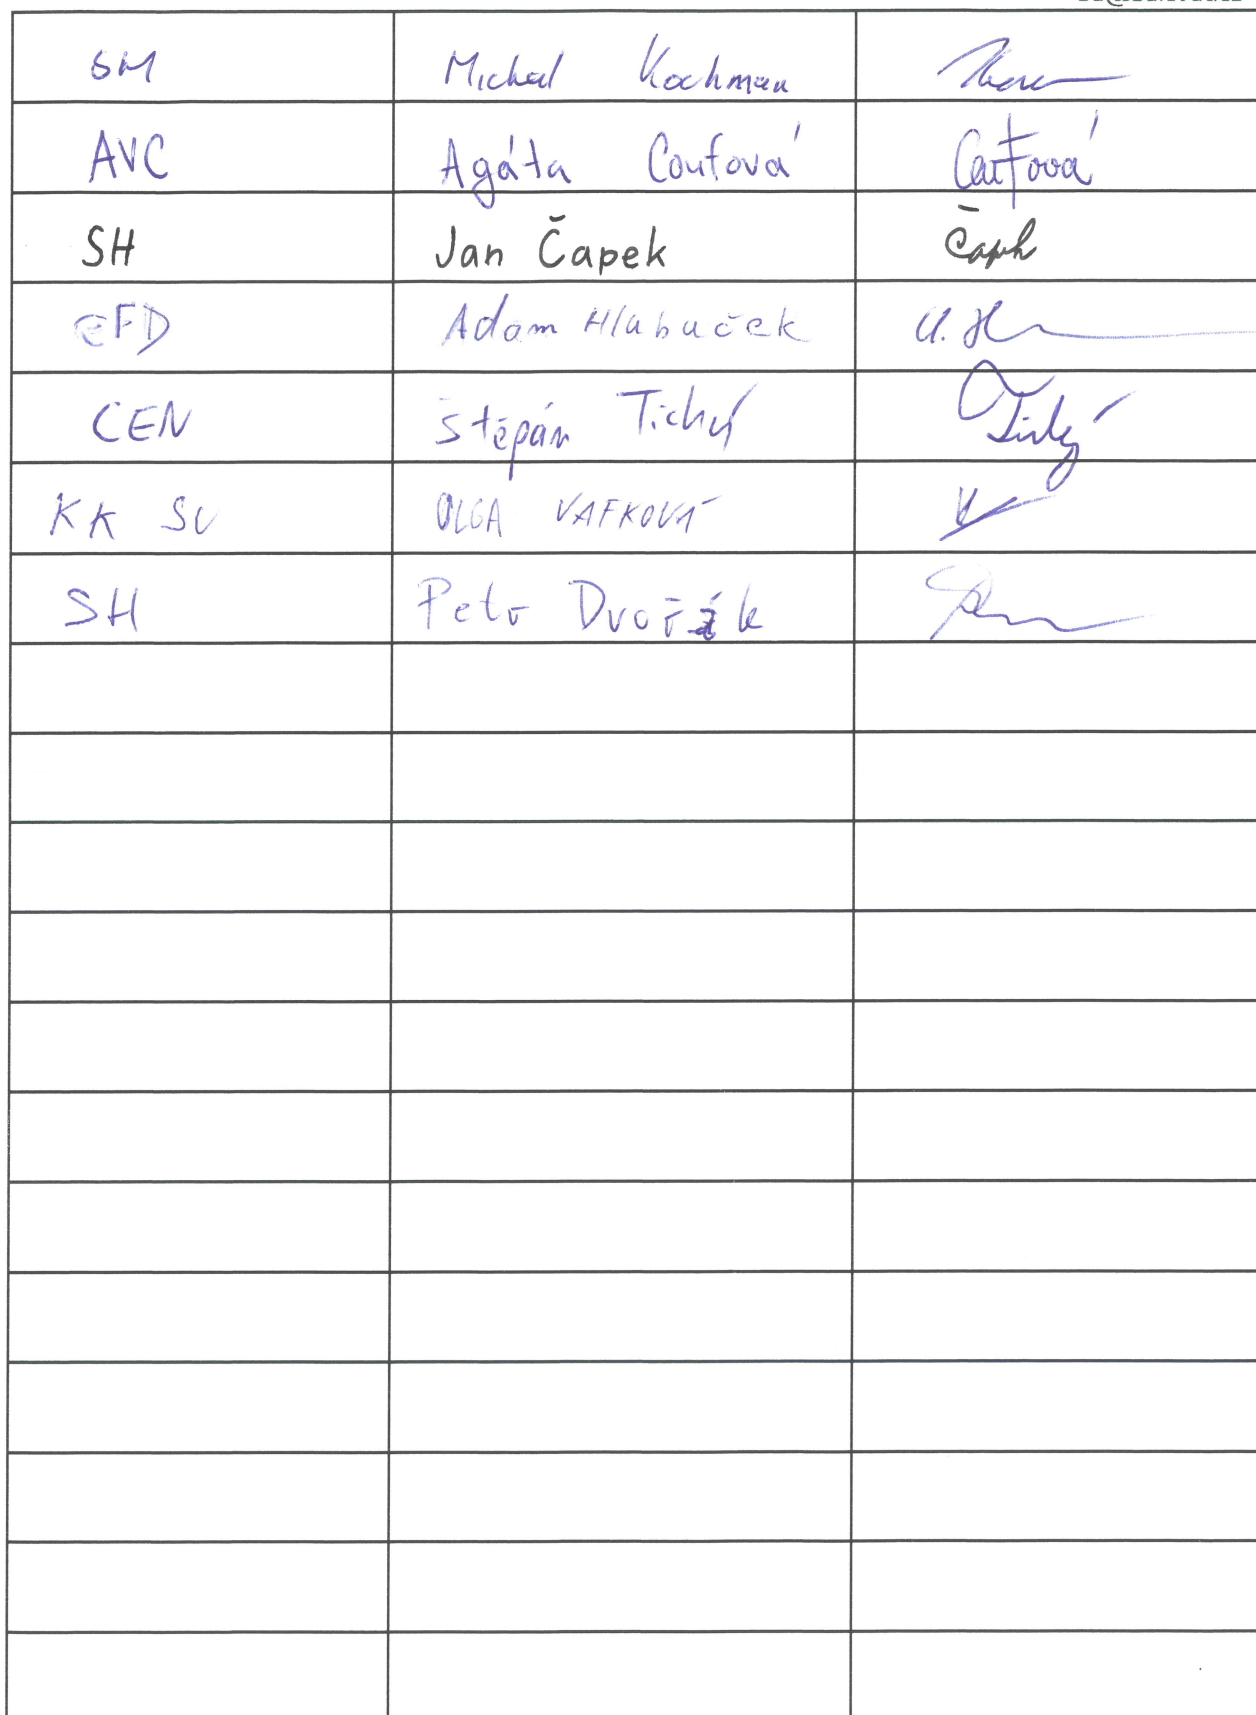 SM Michal Kochman
AVC Agáta Coufová Coufová
SH Jan Čapek Čapek
eFD Adam Hlubuček A. H
CEN Štěpán Tichý Tichý
KK SU OLGA VAFKOVÁ
SH Petr Dvořák